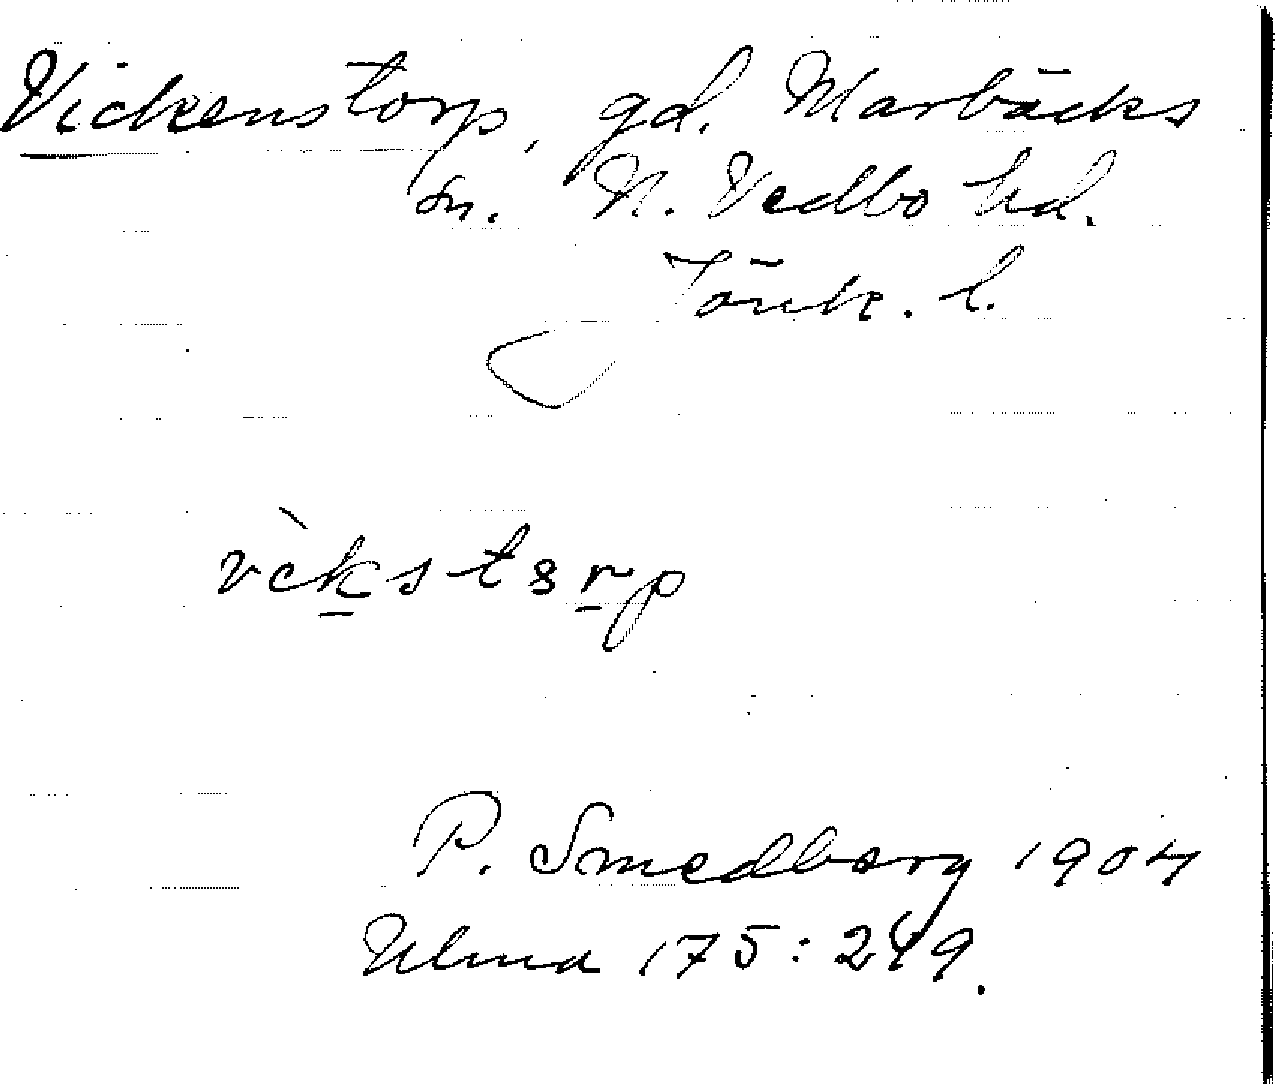 Vickenstorp, gd. Marbäcks
sn. N. Vedbo hd.
Jönk. l.
P. Smedberg 1904
Ulma 175:249.